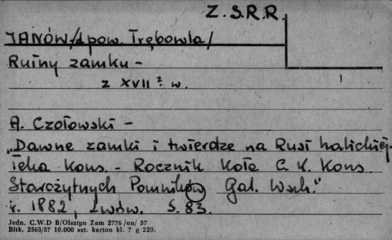 Z.S.R.R.
JANÓW /d. pow. Trębowla/
Ruiny zamku -
z XVII? w.
A. Czołowski -
„Dawne zamki i twierdze na Rusi halickiej.
Teka Kons. - Rocznik Koła C. K. Kons.
Starożytnych Pomników Gal. Wsch."
r. 1882, Lwów. S. 83.
Jedn. C.W.D B/Olsztyn Zam 2776 /on/ 57
Bltk. 2563/37 10.000 szt. karton kl. 7 g 220.